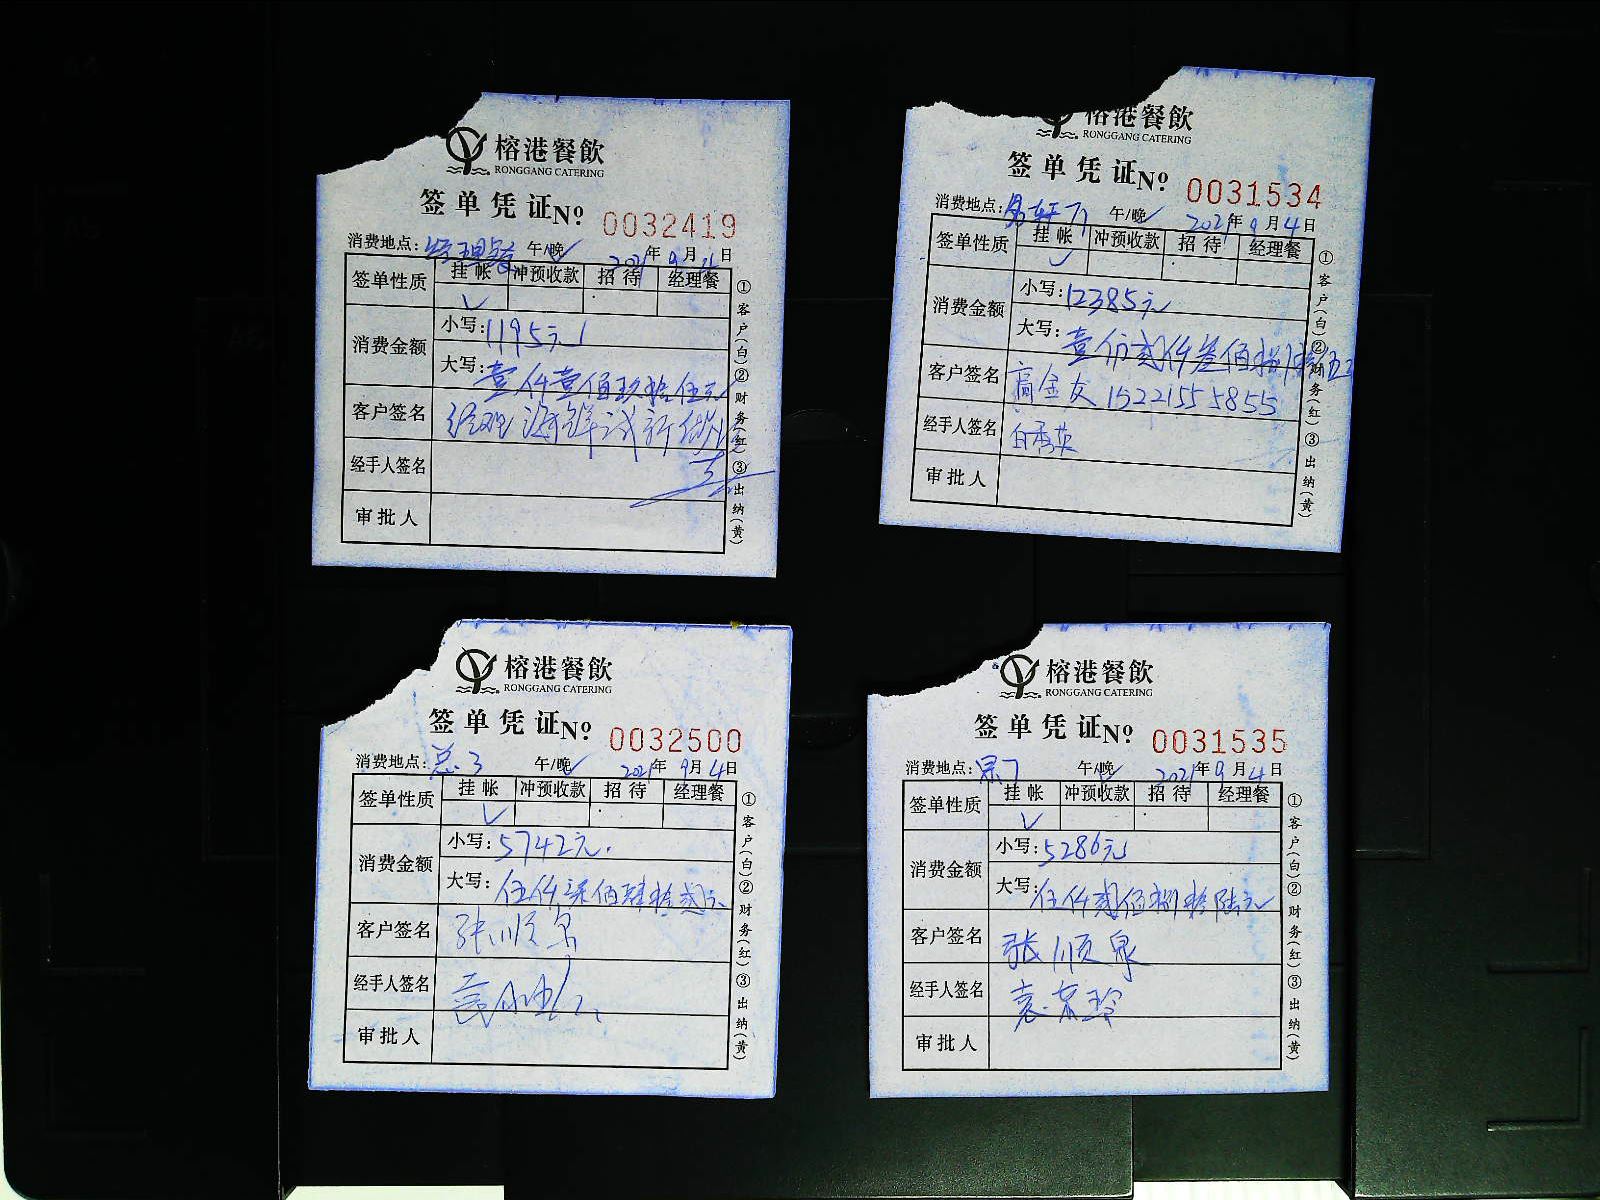 榕港餐飲
RONGGANG CATERING
签单凭证 Nº 0032419
消费地点: 经理餐 午/晚✓ 2021年9月4日
签单性质 挂帐 冲预收款 招待 经理餐
✓
消费金额 小写: 1195元
大写: 壹仟壹佰玖拾伍元
客户签名 经理
经手人签名
审批人
①客户(白)②财务(红)③出纳(黄)
榕港餐飲
RONGGANG CATERING
签单凭证 Nº 0031534
消费地点: 午/晚✓ 2021年9月4日
签单性质 挂帐 冲预收款 招待 经理餐
✓
消费金额 小写: 12385元
大写: 壹万贰仟叁佰捌拾伍元
客户签名 高金友 15221555855
经手人签名 白秀英
审批人
①客户(白)②财务(红)③出纳(黄)
榕港餐飲
RONGGANG CATERING
签单凭证 Nº 0032500
消费地点: 总.3 午/晚✓ 2021年9月4日
签单性质 挂帐 冲预收款 招待 经理餐
✓
消费金额 小写: 5742元.
大写: 伍仟柒佰肆拾贰元
客户签名 张顺泉
经手人签名
审批人
①客户(白)②财务(红)③出纳(黄)
榕港餐飲
RONGGANG CATERING
签单凭证 Nº 0031535
消费地点: 午/晚✓ 2021年9月4日
签单性质 挂帐 冲预收款 招待 经理餐
✓
消费金额 小写: 5286元
大写: 伍仟贰佰捌拾陆元
客户签名 张顺泉
经手人签名
审批人
①客户(白)②财务(红)③出纳(黄)